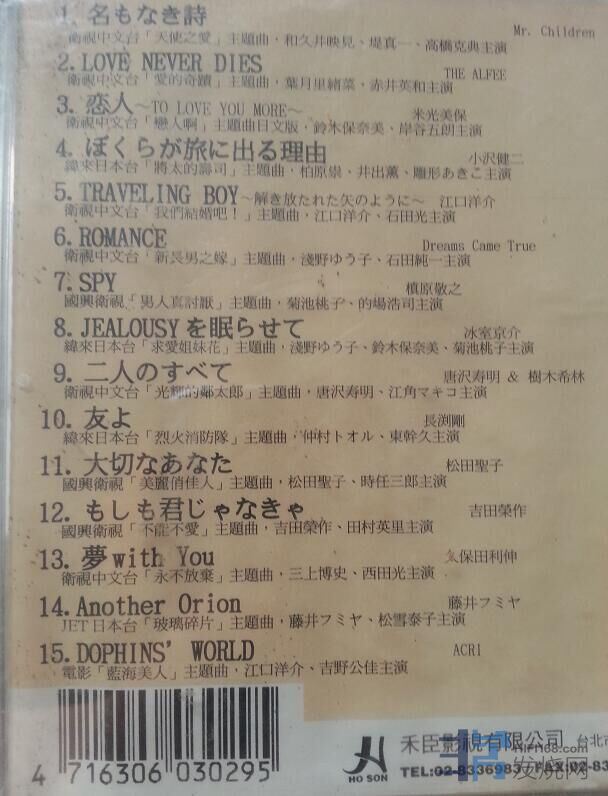 1. 名もなき詩 Mr. Children
衛視中文台「天使之愛」主題曲，和久井映見、堤真一、高橋克典主演
2. LOVE NEVER DIES THE ALFEE
衛視中文台「愛的奇蹟」主題曲，葉月里緒菜，赤井英和主演
3. 恋人～TO LOVE YOU MORE～ 米光美保
衛視中文台「戀人啊」主題曲日文版，鈴木保奈美、岸谷五朗主演
4. ぼくらが旅に出る理由 小沢健二
緯來日本台「將太的壽司」主題曲，柏原崇、井出薫、雛形あきこ主演
5. TRAVELING BOY～解き放たれた矢のように～ 江口洋介
衛視中文台「我們結婚吧！」主題曲，江口洋介、石田光主演
6. ROMANCE Dreams Came True
衛視中文台「新長男之嫁」主題曲，淺野ゆう子、石田純一主演
7. SPY 槙原敬之
國興衛視「男人真討厭」主題曲，菊池桃子、的場浩司主演
8. JEALOUSYを眠らせて 冰室京介
緯來日本台「求愛姐妹花」主題曲，淺野ゆう子、鈴木保奈美、菊池桃子主演
9. 二人のすべて 唐沢寿明 & 樹木希林
衛視中文台「光輝的鄰太郎」主題曲，唐沢寿明、江角マキコ主演
10. 友よ 長渕剛
緯來日本台「烈火消防隊」主題曲，仲村トオル、東幹久主演
11. 大切なあなた 松田聖子
國興衛視「美麗俏佳人」主題曲，松田聖子、時任三郎主演
12. もしも君じゃなきゃ 吉田榮作
國興衛視「不能不愛」主題曲，吉田榮作、田村英里主演
13. 夢with You 久保田利伸
衛視中文台「永不放棄」主題曲，三上博史、西田光主演
14. Another Orion 藤井フミヤ
JET日本台「玻璃碎片」主題曲，藤井フミヤ、松雪泰子主演
15. DOPHINS' WORLD ACRI
電影「藍海美人」主題曲，江口洋介、吉野公佳主演
4 716306 030295
HO SON
禾臣影視有限公司 台北市
TEL:02-8336983 FAX:02-83
HIFI168.com
发烧网